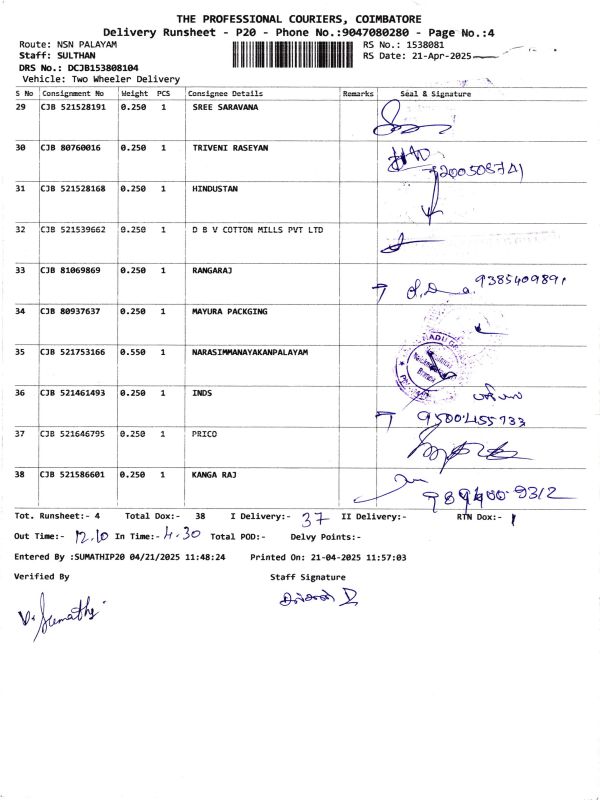 THE PROFESSIONAL COURIERS, COIMBATORE
Delivery Runsheet - P20 - Phone No.:9047080280 - Page No.:4
Route: NSN PALAYAM RS No.: 1538081
Staff: SULTHAN RS Date: 21-Apr-2025
DRS No.: DCJB153808104
Vehicle: Two Wheeler Delivery
S No Consignment No Weight PCS Consignee Details Remarks Seal & Signature
29 CJB 521528191 0.250 1 SREE SARAVANA
30 CJB 80760016 0.250 1 TRIVENI RASEYAN
31 CJB 521528168 0.250 1 HINDUSTAN
32 CJB 521539662 0.250 1 D B V COTTON MILLS PVT LTD
33 CJB 81069869 0.250 1 RANGARAJ 9385409891
34 CJB 80937637 0.250 1 MAYURA PACKGING
35 CJB 521753166 0.550 1 NARASIMMANAYAKANPALAYAM
36 CJB 521461493 0.250 1 INDS
9500455733
37 CJB 521646795 0.250 1 PRICO
38 CJB 521586601 0.250 1 KANGA RAJ
Tot. Runsheet:- 4 Total Dox:- 38 I Delivery:- 37 II Delivery:- RTN Dox:- 1
Out Time:- 12.10 In Time:- 4.30 Total POD:- Delvy Points:-
Entered By :SUMATHIP20 04/21/2025 11:48:24 Printed On: 21-04-2025 11:57:03
Verified By Staff Signature
V. Sumathi